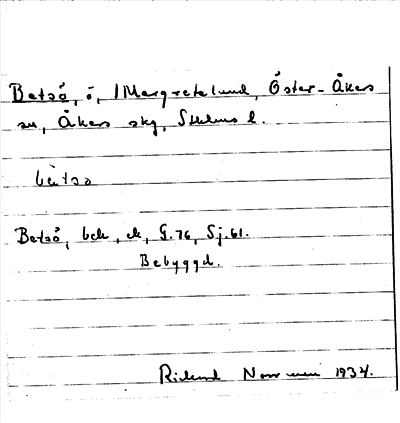 Betsö, ö, /Margretelund, Öster-Åkers
sn, Åkers skg, Sthlms l.
bètsə
Betsö, bek, ek, G.76, Sj.61.
Bebyggd.
Rickard 1934.